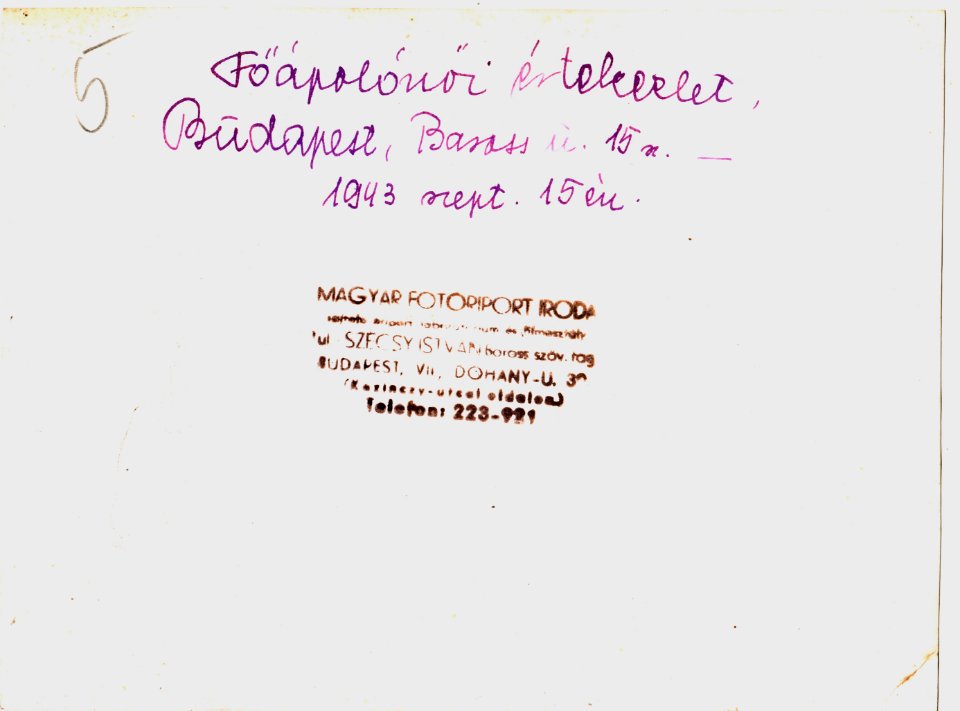 5
Főápolónői értekezlet,
Budapest, Baross u. 15 sz. —
1943 szept. 15 én.
MAGYAR FOTORIPORT IRODA
és filmosztály
SZÉCSY ISTVÁN boross szöv. tag
BUDAPEST, VII, DOHÁNY-U.
(Kazinczy-utcai oldalon)
Telefon: 223-921